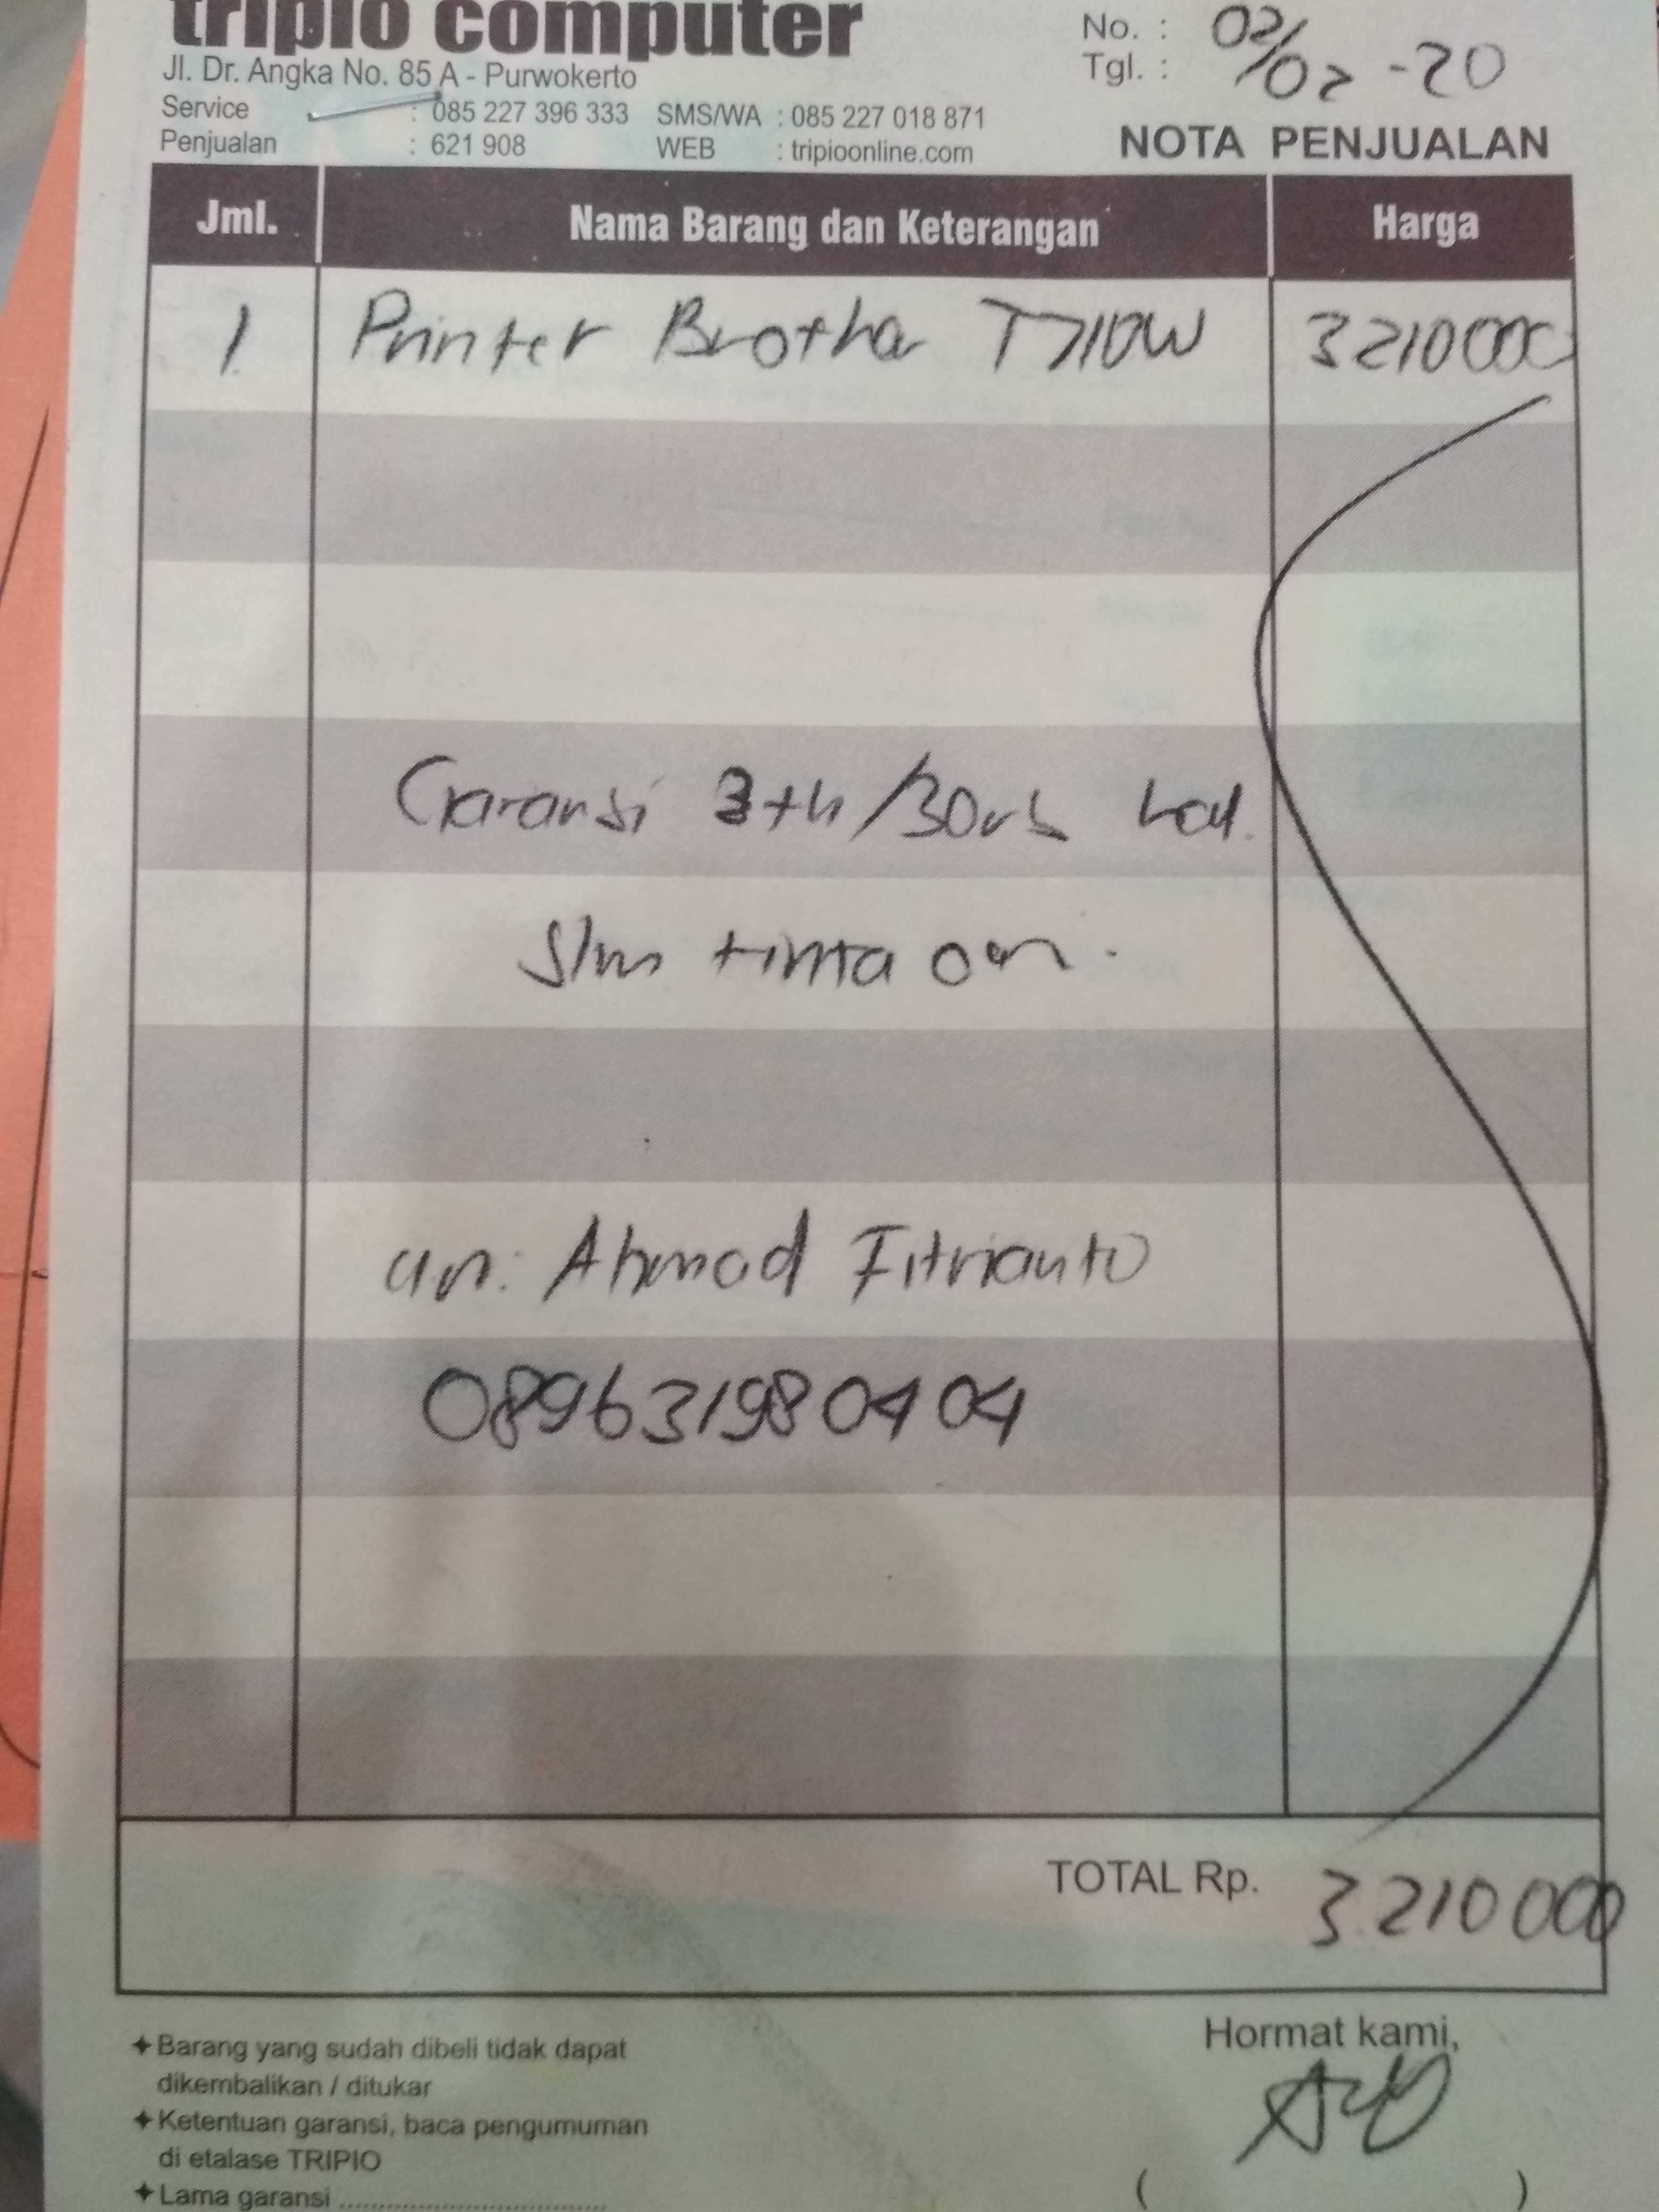 tripio computer
Jl. Dr. Angka No. 85 A - Purwokerto
Service : 085 227 396 333 SMS/WA : 085 227 018 871
Penjualan : 621 908 WEB : tripioonline.com
No. :
Tgl. : 02/02-20
NOTA PENJUALAN
Jml. Nama Barang dan Keterangan Harga
1 Printer Brother T710W 3210000
Garansi 3th/30rb hal.
Slm tinta ori.
an: Ahmad Fitrianto
089631980404
TOTAL Rp. 3.210000
Barang yang sudah dibeli tidak dapat
dikembalikan / ditukar
Ketentuan garansi, baca pengumuman
di etalase TRIPIO
Lama garansi ..............................
Hormat kami,
( )